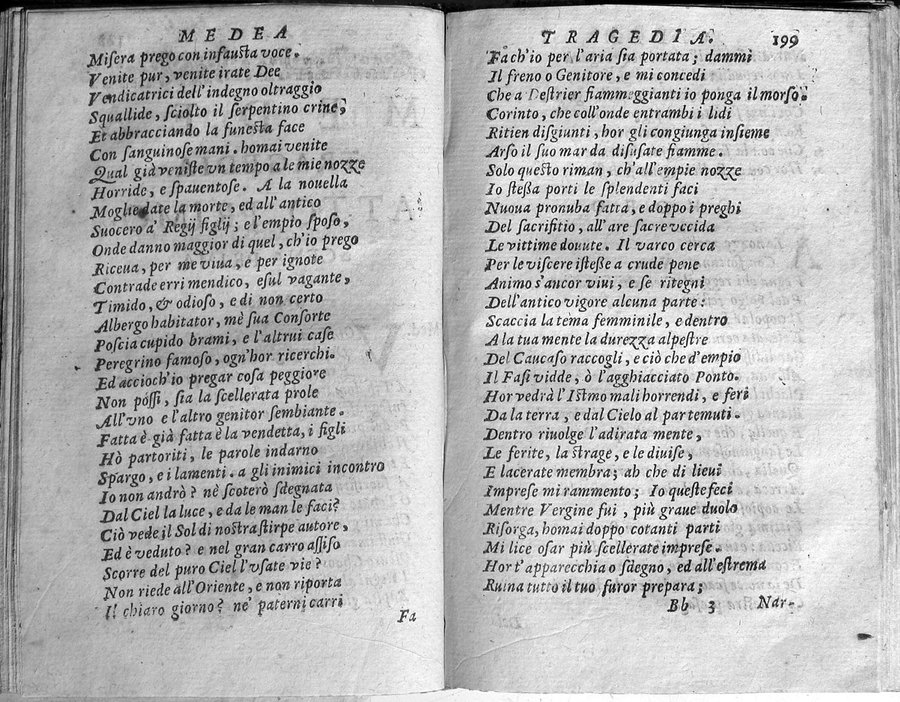 MEDEA
Misera prego con infausta voce.
Venite pur, venite irate Dee
Vendicatrici dell'indegno oltraggio
Squallide, sciolto il serpentino crine;
Et abbracciando la funesta face
Con sanguinose mani. homai venite
Qual già veniste vn tempo a le mie nozze
Horride, e spauentose. A la nouella
Moglie date la morte, ed all'antico
Suocero a' Regij figlij; e l'empio sposo,
Onde danno maggior di quel, ch'io prego
Riceua, per me viua, e per ignote
Contrade erri mendico, esul vagante,
Timido, & odioso, e di non certo
Albergo habitator, mè sua Consorte
Poscia cupido brami, e l'altrui case
Peregrino famoso, ogn'hor ricerchi.
Ed accioch'io pregar cosa peggiore
Non possi, sia la scellerata prole
All'vno e l'altro genitor sembiante.
Fatta è già fatta è la vendetta, i figli
Hò partoriti, le parole indarno
Spargo, e i lamenti. a gli inimici incontro
Io non andrò? nè scoterò sdegnata
Dal Ciel la luce, e da le man le faci?
Ciò vede il Sol di nostra stirpe autore,
Ed è veduto? e nel gran carro assiso
Scorre del puro Ciel l'vsate vie?
Non riede all'Oriente, e non riporta
Il chiaro giorno? ne' paterni carri
Fa
TRAGEDIA. 199
Fa ch'io per l'aria sia portata; dammi
Il freno o Genitore, e mi concedi
Che a Destrier fiammeggianti io ponga il morso.
Corinto, che coll'onde entrambi i lidi
Ritien disgiunti, hor gli congiunga insieme
Arso il suo mar da disusate fiamme.
Solo questo riman, ch'all'empie nozze
Io stessa porti le splendenti faci
Nuoua pronuba fatta, e doppo i preghi
Del sacrifitio, all'are sacre vccida
Le vittime douute. Il varco cerca
Per le viscere istesse a crude pene
Animo s'ancor viui, e se ritegni
Dell'antico vigore alcuna parte:
Scaccia la tema femminile, e dentro
A la tua mente la durezza alpestre
Del Caucaso raccogli, e ciò che d'empio
Il Fasi vidde, ò l'agghiacciato Ponto.
Hor vedrà l'Istmo mali horrendi, e feri
Da la terra, e dal Cielo al par temuti.
Dentro riuolge l'adirata mente,
Le ferite, la strage, e le diuise,
E lacerate membra; ah che di lieui
Imprese mi rammento; Io queste feci
Mentre Vergine fui, più graue duolo
Risorga, homai doppo cotanti parti
Mi lice osar più scellerate imprese.
Hor t'apparecchia o sdegno, ed all'estrema
Ruina tutto il tuo furor prepara;
Bb 3 Nar-